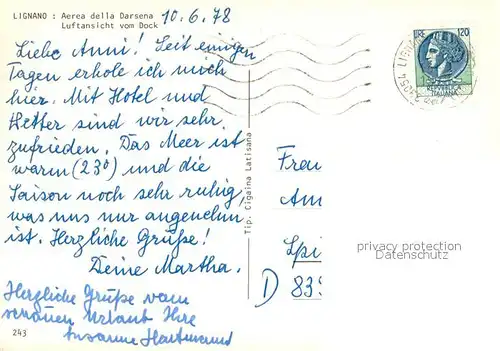 LIGNANO : Aerea della Darsena
Luftansicht vom Dock
10.6.78
Liebe Anni! Seit einigen
Tagen erhole ich mich
hier. Mit Hotel und
Wetter sind wir sehr
zufrieden. Das Meer ist
warm (23°) und die
Saison noch sehr ruhig,
was uns nur angenehm
ist. Herzliche Grüße!
Deine Martha.
Herzliche Grüße vom
schönen Urlaub Ihre
Susanne Hartmann
243
Tip. Cigaina Latisana
LIRE 120
REPUBBLICA
ITALIANA
Frau
Am
Spi
D 839
privacy protection
Datenschutz